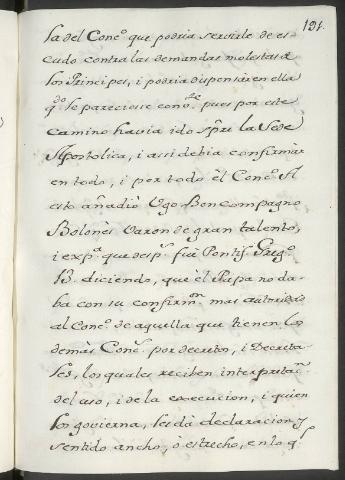 191.
sa del Conc.º que podria servirle de es
cudo contra las demandas molestas de
los Principes, i podria dispensar en ella
q.do se pareciesse conv.te pues por este
camino havia ido sp̃re la Sede
Apostolica, i assi debia confirmar
en todo, i por todo èl Conc.º A
esto añadiò Ugo Boncompagno
Bolonès Varon de gran talento,
i exp.a que desp.s fuè Pontif. Greg.º
13. diciendo, que èl Papa no da-
ba con su confirm.on mas autoridad
al Conc.º de aquella que tienen los
demàs Conc.s por decretos, i Decreta
les, los quales reciben interpretac.n
del uso, i de la execucion, i quien
los govierna, les dà declaracion, y
sentido ancho, ò estrecho, en lo q.e